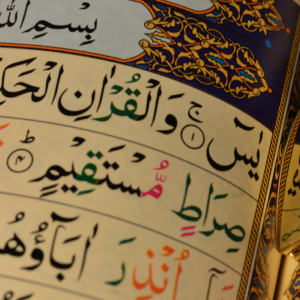 بِسْمِ اللّٰهِ
يٰسٓ ۚ ﴿١﴾ وَالْقُرْاٰنِ الْحَكِ
صِرَاطٍ مُّسْتَقِيْمٍ ؕ ﴿٤﴾
اُنْذِرَ اٰبَآؤُهُ